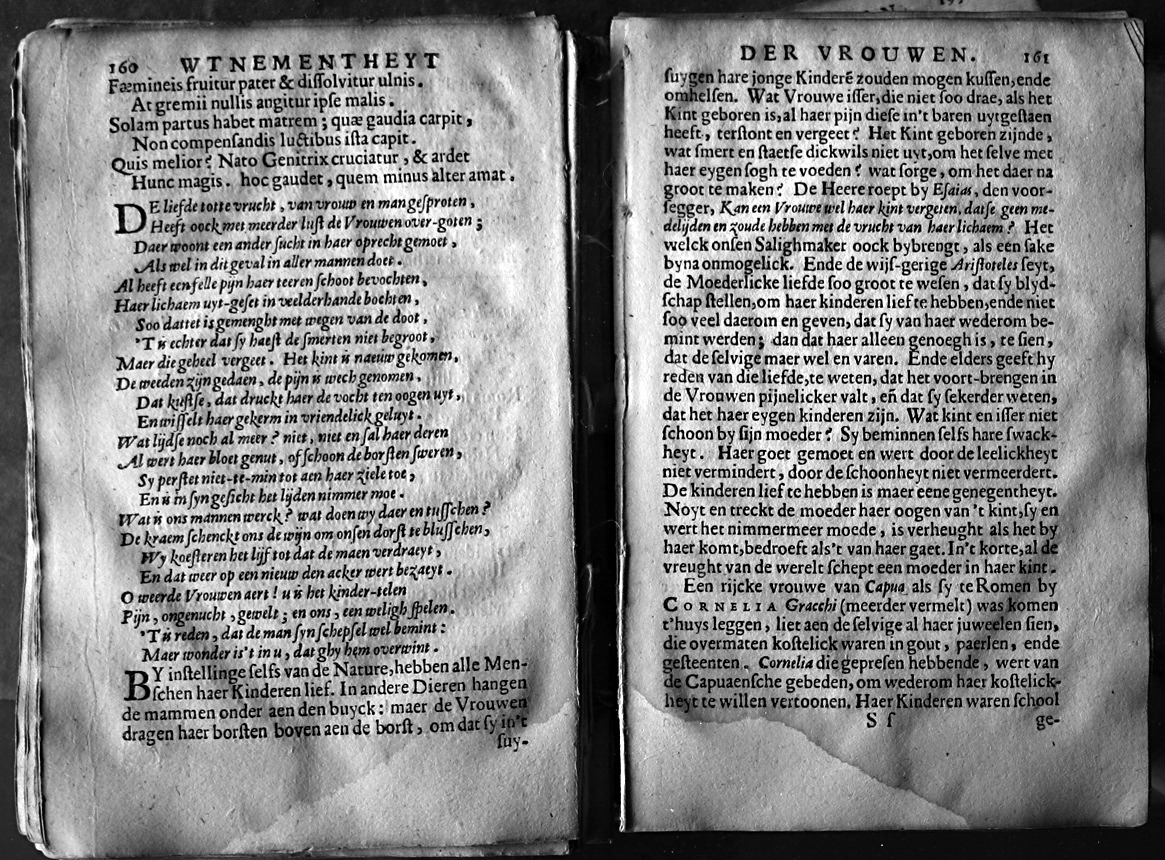 160 WTNEMENTHEYT
Fæmineis fruitur pater & dissolvitur ulnis.
At gremii nullis angitur ipse malis.
Solam partus habet matrem; quæ gaudia carpit,
Non compensandis luctibus ista capit.
Quis melior? Nato Genitrix cruciatur, & ardet
Hunc magis. hoc gaudet, quem minus alter amat.
DE liefde totte vrucht, van vrouw en man gesproten,
Heeft oock met meerder lust de Vrouwen over-goten;
Daer woont een ander sucht in haer oprecht gemoet,
Als wel in dit geval in aller mannen doet.
Al heeft een felle pijn haer teeren schoot bevochten,
Haer lichaem uyt-geset in veelderhande bochten,
Soo dattet is gemenght met wegen van de doot,
'T is echter dat sy haest de smerten niet begroot,
Maer die geheel vergeet. Het kint is naeuw gekomen,
De weeden zijn gedaen, de pijn is wech genomen,
Dat kustse, dat druckt haer de vocht ten oogen uyt,
En wisselt haer gekerm in vriendelick geluyt.
Wat lijdse noch al meer? niet, niet en sal haer deren
Al wert haer bloet genut, of schoon de borsten sweren,
Sy perstet niet-te-min tot aen haer ziele toe,
En is in syn gesicht het lijden nimmer moe.
Wat is ons mannen werck? wat doen wy daer en tusschen?
De kraem schenckt ons de wijn om onsen dorst te blusschen,
Wy koesteren het lijf tot dat de maen verdraeyt,
En dat weer op een nieuw den acker wert bezaeyt.
O weerde Vrouwen aert! u is het kinder-telen
Pijn, ongenucht, gewelt; en ons, een weligh spelen.
'T is reden, dat de man syn schepsel wel bemint:
Maer wonder is't in u, dat ghy hem overwint.
BY instellinge selfs van de Nature, hebben alle Men-
schen haer Kinderen lief. In andere Dieren hangen
de mammen onder aen den buyck: maer de Vrouwen
dragen haer borsten boven aen de borst, om dat sy in't
suy-
DER VROUWEN. 161
suygen hare jonge Kinderē zouden mogen kussen, ende
omhelsen. Wat Vrouwe isser, die niet soo drae, als het
Kint geboren is, al haer pijn diese in't baren uytgestaen
heeft, terstont en vergeet? Het Kint geboren zijnde,
wat smert en staetse dickwils niet uyt, om het selve met
haer eygen sogh te voeden? wat sorge, om het daer na
groot te maken? De Heere roept by Esaias, den voor-
segger, Kan een Vrouwe wel haer kint vergeten, datse geen me-
delijden en zoude hebben met de vrucht van haer lichaem? Het
welck onsen Salighmaker oock bybrengt, als een sake
byna onmogelick. Ende de wijs-gerige Aristoteles seyt,
de Moederlicke liefde soo groot te wesen, dat sy blyd-
schap stellen, om haer kinderen lief te hebben, ende niet
soo veel daerom en geven, dat sy van haer wederom be-
mint werden; dan dat haer alleen genoegh is, te sien,
dat de selvige maer wel en varen. Ende elders geeft hy
reden van die liefde, te weten, dat het voort-brengen in
de Vrouwen pijnelicker valt, eñ dat sy sekerder weten,
dat het haer eygen kinderen zijn. Wat kint en isser niet
schoon by sijn moeder? Sy beminnen selfs hare swack-
heyt. Haer goet gemoet en wert door de leelickheyt
niet vermindert, door de schoonheyt niet vermeerdert.
De kinderen lief te hebben is maer eene genegentheyt.
Noyt en treckt de moeder haer oogen van 't kint, sy en
wert het nimmermeer moede, is verheught als het by
haer komt, bedroeft als't van haer gaet. In't korte, al de
vreught van de werelt schept een moeder in haer kint.
Een rijcke vrouwe van Capua als sy te Romen by
CORNELIA Gracchi (meerder vermelt) was komen
t'huys leggen, liet aen de selvige al haer juweelen sien,
die overmaten kostelick waren in gout, paerlen, ende
gesteenten. Cornelia die gepresen hebbende, wert van
de Capuaensche gebeden, om wederom haer kostelick-
heyt te willen vertoonen. Haer Kinderen waren school
S s ge-